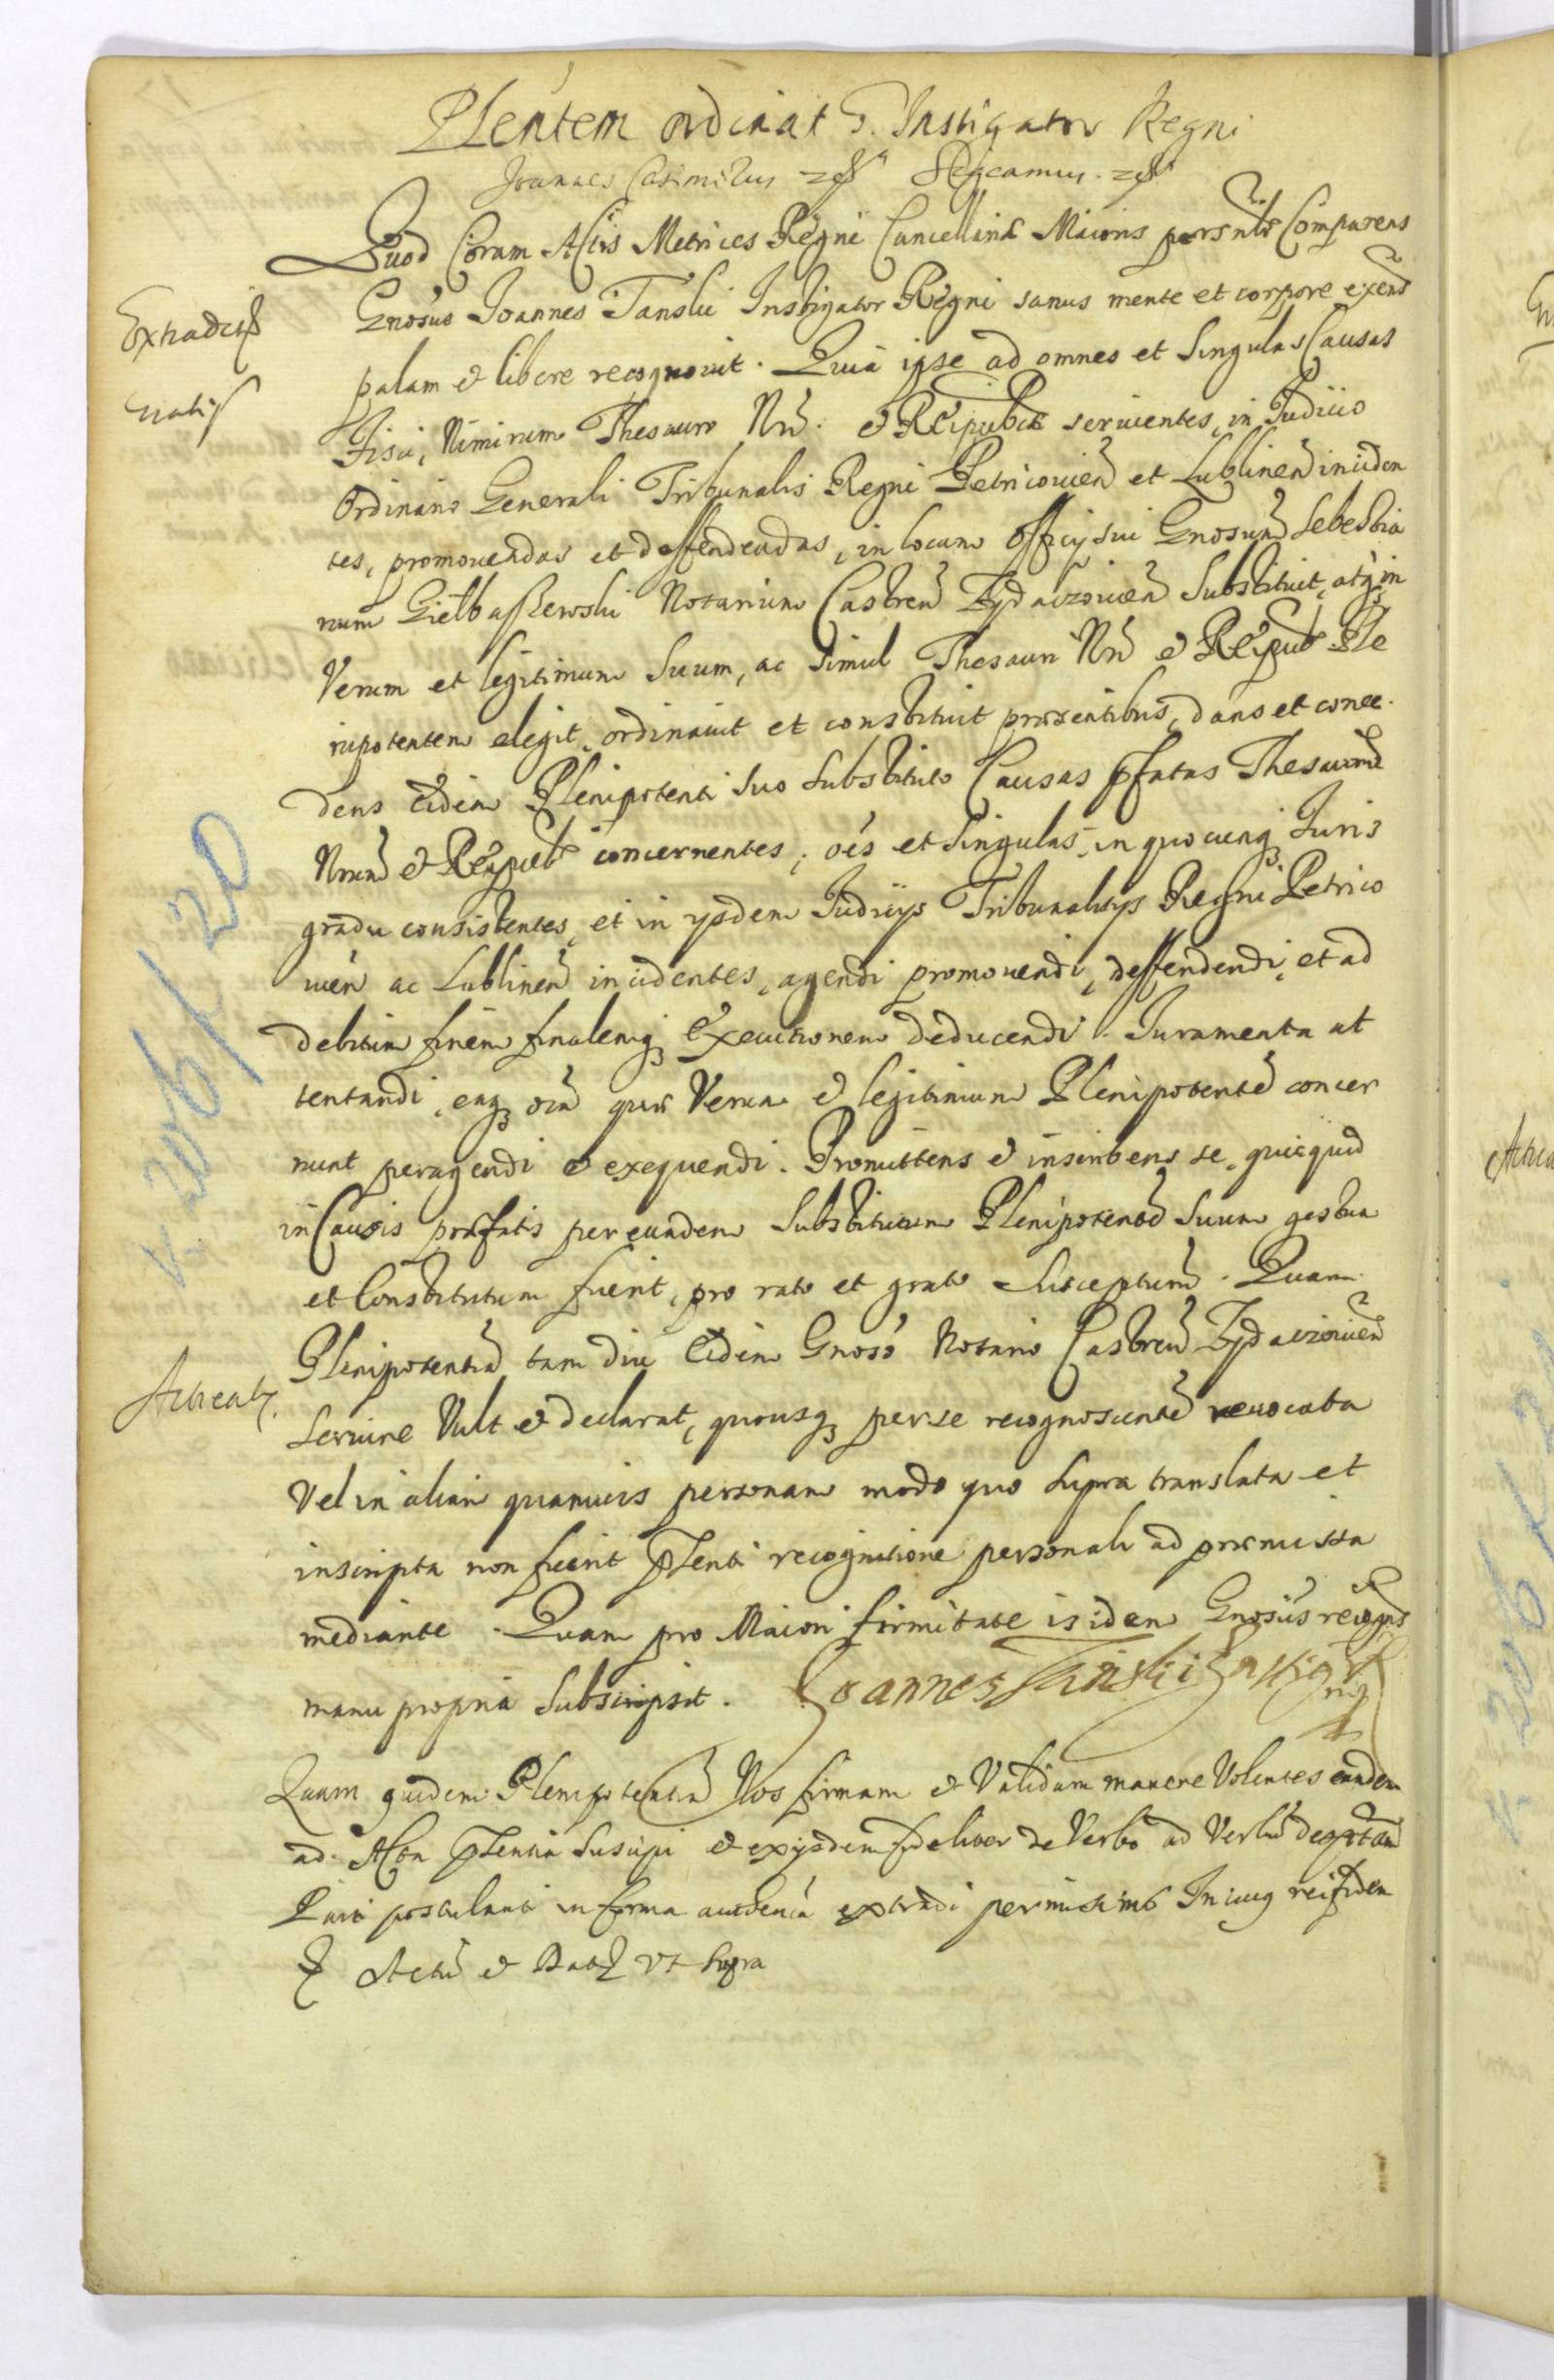 Plentem ordinat G. Instigator Regni
Joannes Casimirus
Quod Coram Actis Metrices Regni Cancellariæ Maioris personlr Comparens
Gnosus Joannes Tanski Instigator Regni sanus mente et corpore exens
Extradit
palam et libere recognovit. Quia ipse ad omnes et singulas Causas
Fisci, Nimirum Thesauro Nro. et Reipublcæ seruientes, in Judicio
Ordinario Generali Tribunalis Regni Petricouien et Lublinen inciden
tes, promouendas et deffendendas, in locum officij sui Gnosum Sebestia
num Giełbaszewski Notarium Castren Zydaczouien Substituit, atq in
Verum et legitimum Suum, ac simul Thesauri Nri et Reipub. Ple
nipotentem elegit, ordinauit et constituit præsentibus, dans et conce.
dens Eidem Plenipotenti Suo substituto Causas pfatas Thesaurum
Nrum et Reipub concernentes, oes et singulas, in quocunq Juris
gradu consistentes, et in ijsdem Iudicijs Tribunalitijs Regni Petrico
uien ac Lublinen incidentes, agendi promouendi, deffendendi, et ad
debitum finem finalemq Executionem deducendi. Iuramenta at
tentandi, eaq oia quæ Verum et legitimum Plenipotentem concer
nunt peragendi et exequendi. Promittens et inscribens se, quicquid
in Causis præfatis per eundem Substitutum Plenipotentem Suum gestum
et Constitutum fuerit, pro rato et grato suscepturum. Quam
Plenipotentiam tam diu Eidem Gnoso Notario Castren Zydaczouien
Acticat.
seruire Vult et declarat, quousq per se recognoscentem reuocata
Vel in aliam quamuis personam modo quo supra translata et
inscripta non fuerit pnti recognitione personali ad præmissa
mediante. Quam pro Maiori firmitate is idem Gnosus recogns
manu propria subscripsit. Joannes Tanski Instigator
mp
Quam quidem Plenipotentiam Nos firmam et Validam manere Volentes eandem
ad Acta pntia suscipi et ex ijsdem fideliter de Verbo ad Verbum
Parti postulanti in forma authentica extradi permisimus In cuius rei fidem
Actum et Datum vt supra
K. 206/20